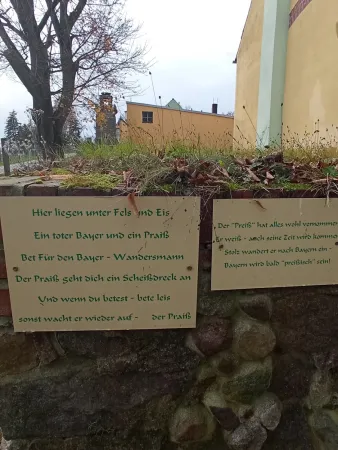 Hier liegen unter Fels und Eis
Ein toter Bayer und ein Praiß
Bet Für den Bayer - Wandersmann
Der Praiß geht dich ein Scheißdreck an
Und wenn du betest - bete leis
sonst wacht er wieder auf - der Praiß
Der "Preiß" hat alles wohl vernommen
Er weiß - auch seine Zeit wird kommen
Stolz wandert er nach Bayern ein -
Bayern wird bald "preißisch" sein!